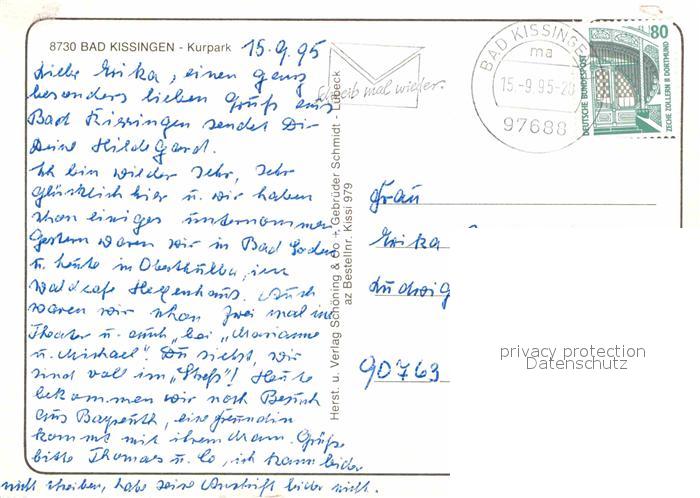 8730 BAD KISSINGEN - Kurpark 15.9.95
Liebe Erika, einen ganz
besonders lieben Gruß aus
Bad Kissingen sendet Dir
Deine Hildegard.
Ich bin wieder sehr, sehr
glücklich hier u. wir haben
schon einiges unternommen.
Gestern waren wir in Bad Soden
u. heute in Oberthulba, im
Waldcafe Heggenhaus. Auch
waren wir schon zwei mal im
Theater u. auch bei "Marianne
u. Michael". Du siehst, wir
sind voll im "Streß"! Heute
bekommen wir noch Besuch
aus Bayreuth, eine Freundin
kommt mit ihrem Mann. Grüße
bitte Thomas u. Co, ich kann leider
nicht schreiben, habe seine Anschrift leider nicht.
Schreib mal wieder.
BAD KISSINGEN
ma
15.-9.95-20
97688
80
DEUTSCHE BUNDESPOST
ZECHE ZOLLERN II DORTMUND
Herst. u. Verlag Schöning & Co + Gebrüder Schmidt - Lübeck
az Bestellnr. Kissi 979
Frau
Erika
Ludwig
90763
privacy protection
Datenschutz